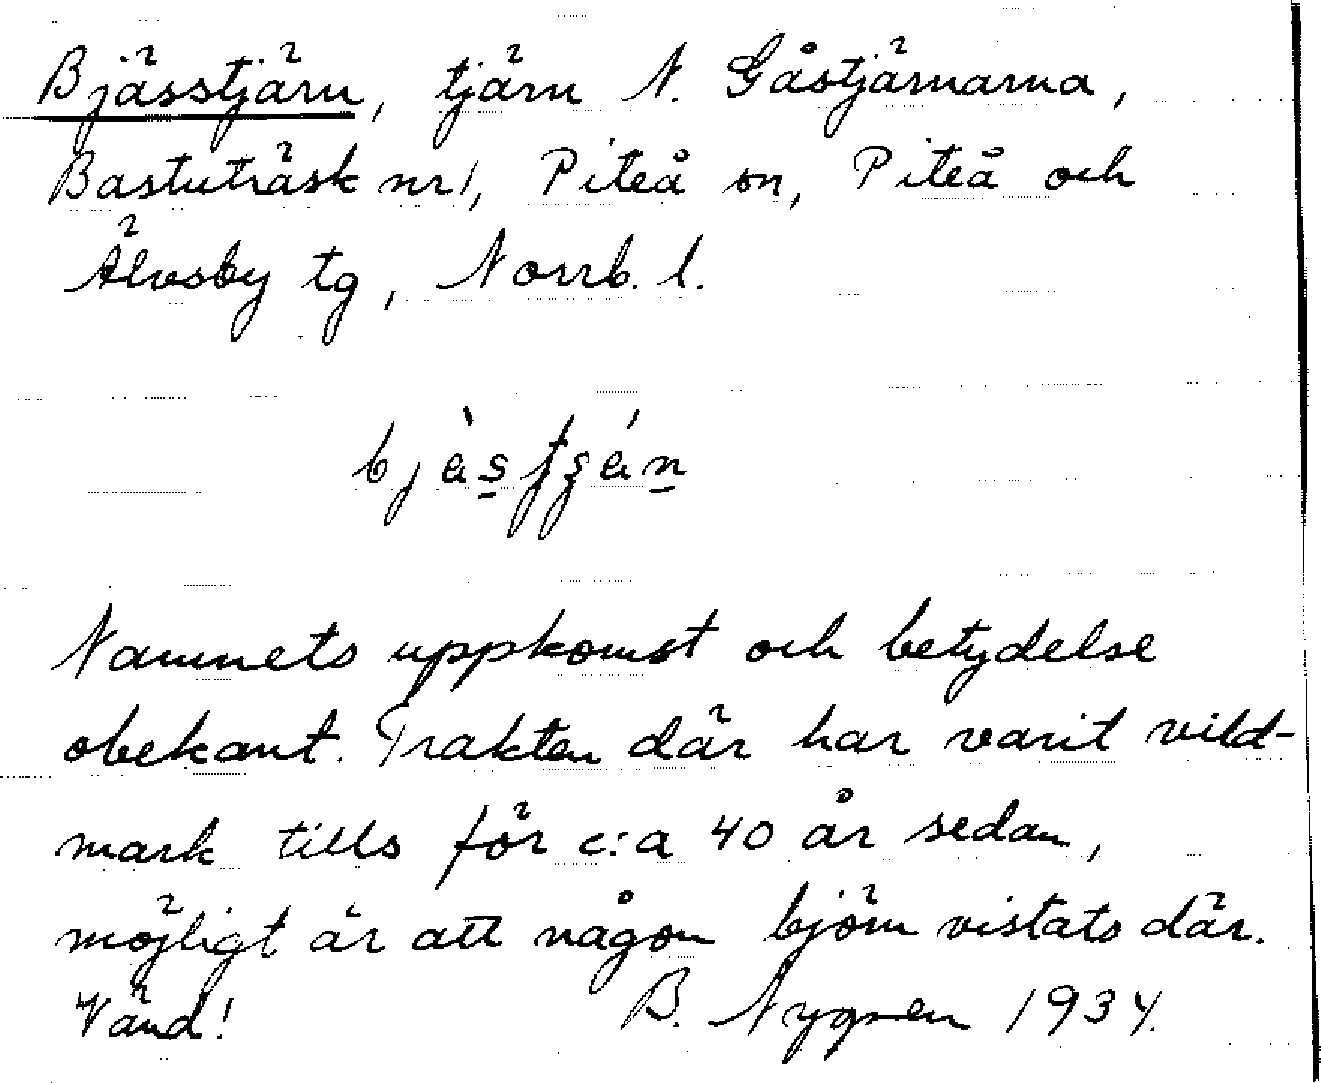 Bjässtjärn, tjärn N. Gåstjärnarna,
Bastuträsk nr 1, Piteå sn, Piteå och
Älvsby tg, Norrb. l.
Namnets uppkomst och betydelse
obekant. Trakten där har varit vild-
mark tills för c:a 40 år sedan,
möjligt är att någon björn vistats där.
Vänd! B. Nygren 1934.